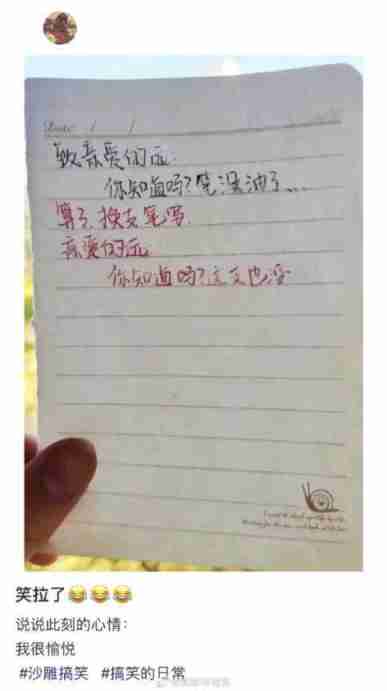 Date: / /
致亲爱的沅
你知道吗?笔没油了...
算了,换支笔写
亲爱的沅
你知道吗?这支也没
笑拉了😂😂😂
说说此刻的心情:
我很愉悦
#沙雕搞笑 #搞笑的日常